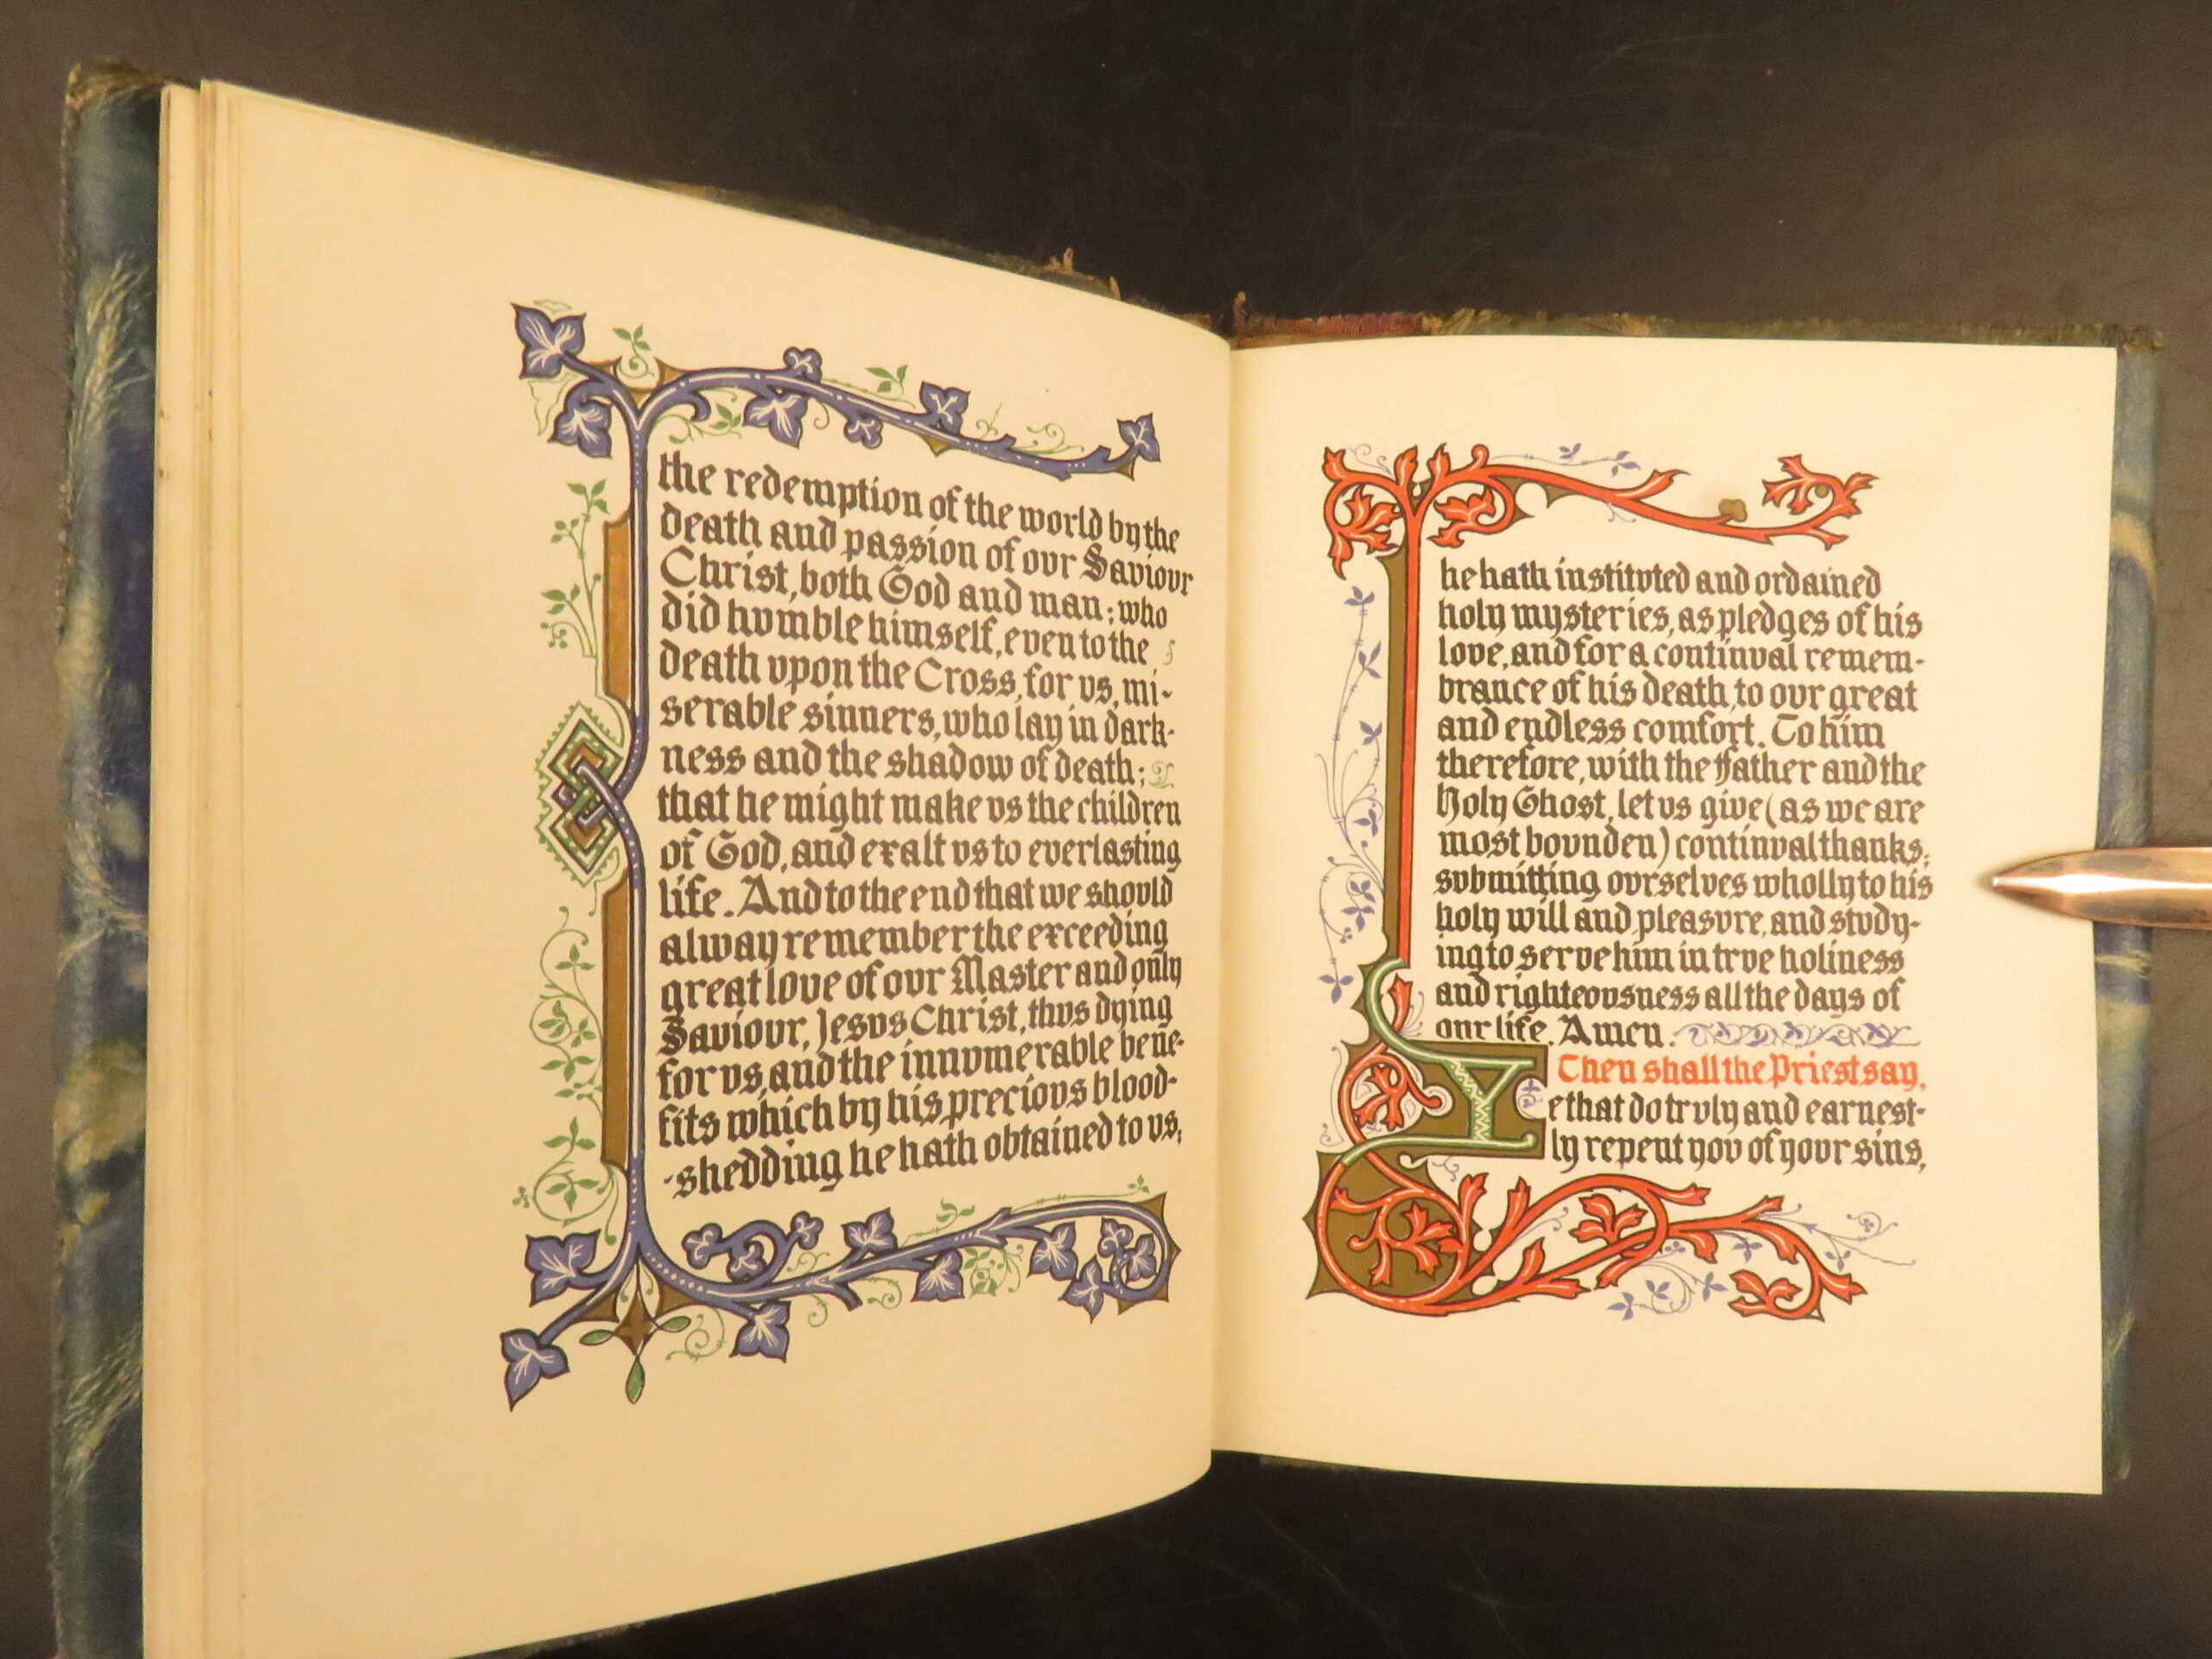 the redemption of the world by the
death and passion of ovr Saviovr
Christ, both God and man; who
did hvmble himself, even to the
death vpon the Cross, for vs, mi-
serable sinners, who lay in dark-
ness and the shadow of death;
that he might make vs the children
of God, and exalt vs to everlasting
life. And to the end that we shovld
alway remember the exceeding
great love of ovr Master and only
Saviovr, Jesvs Christ, thvs dying
for vs, and the innvmerable bene-
fits which by his preciovs blood-
-shedding he hath obtained to vs;
he hath institvted and ordained
holy mysteries, as pledges of his
love, and for a continval remem-
brance of his death, to ovr great
and endless comfort. To him
therefore, with the Father and the
Holy Ghost, let vs give (as we are
most bovnden) continval thanks;
svbmitting ovrselves wholly to his
holy will and pleasvre, and stvdy-
ing to serve him in trve holiness
and righteovsness all the days of
our life. Amen.
Then shall the Priest say,
Ye that do trvly and earnest-
ly repent yov of yovr sins,